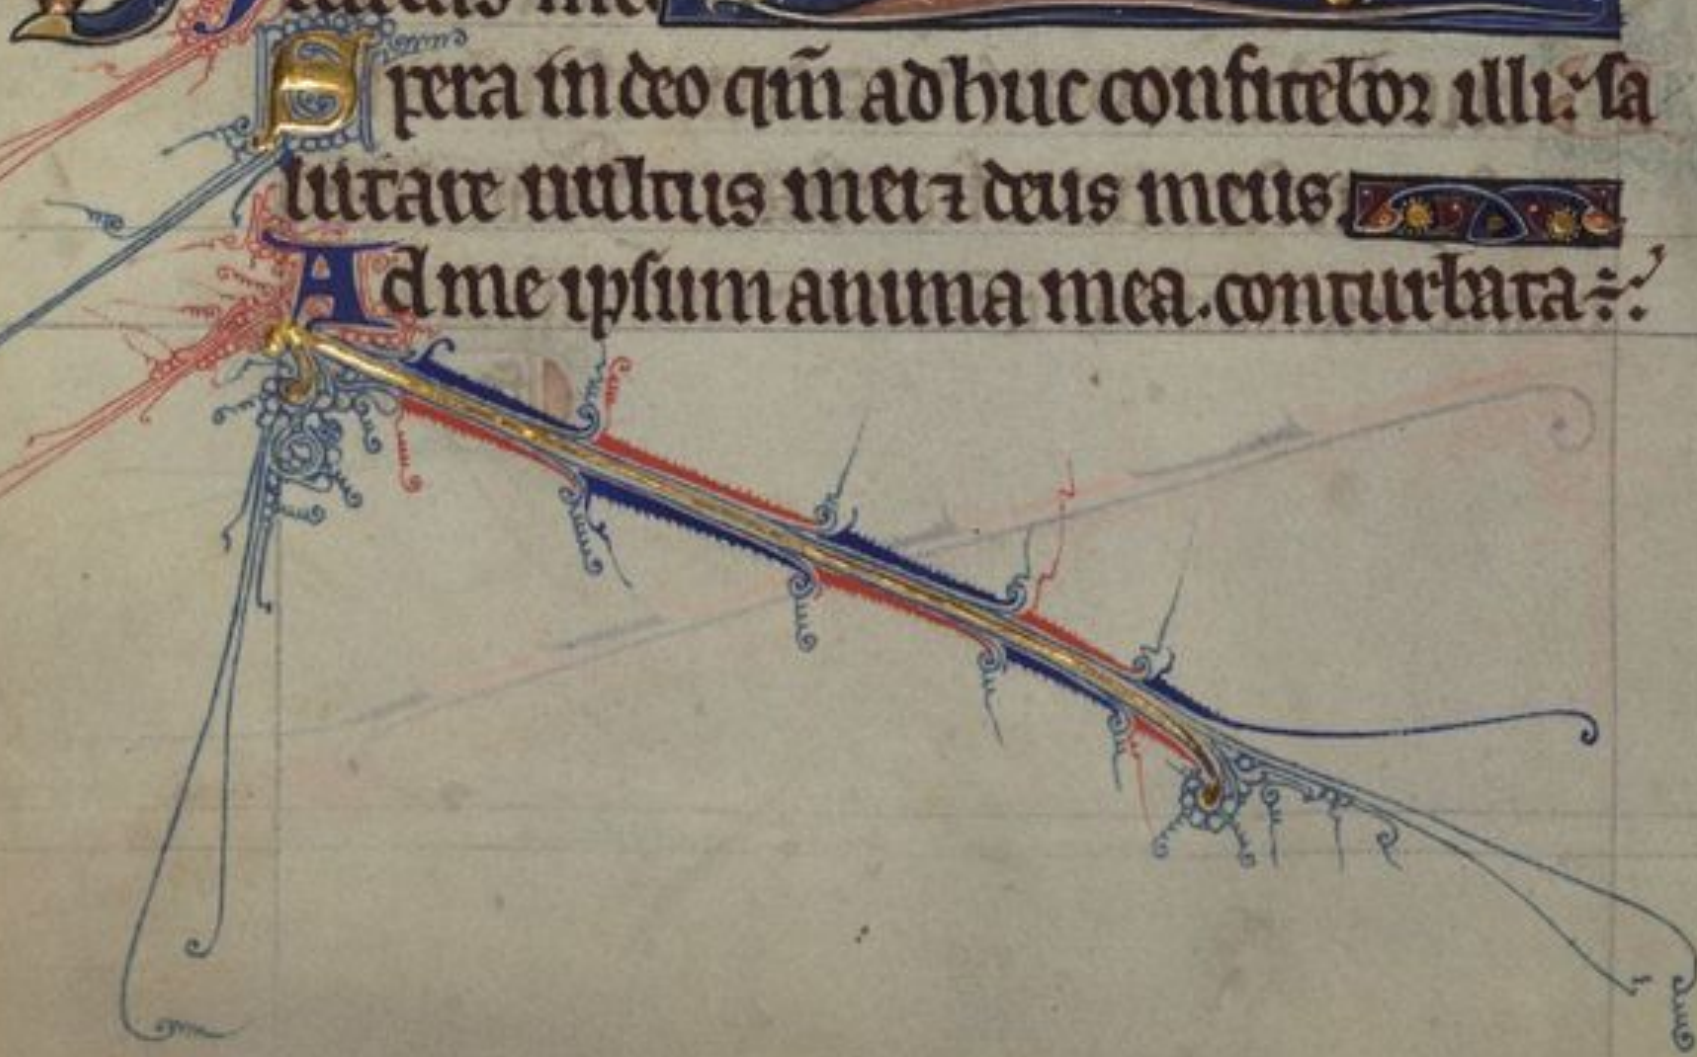 Spera in deo qm̄ adhuc confitebor illi: sa
lutare uultus mei ⁊ deus meus.
Ad me ipsum anima mea. conturbata ÷: